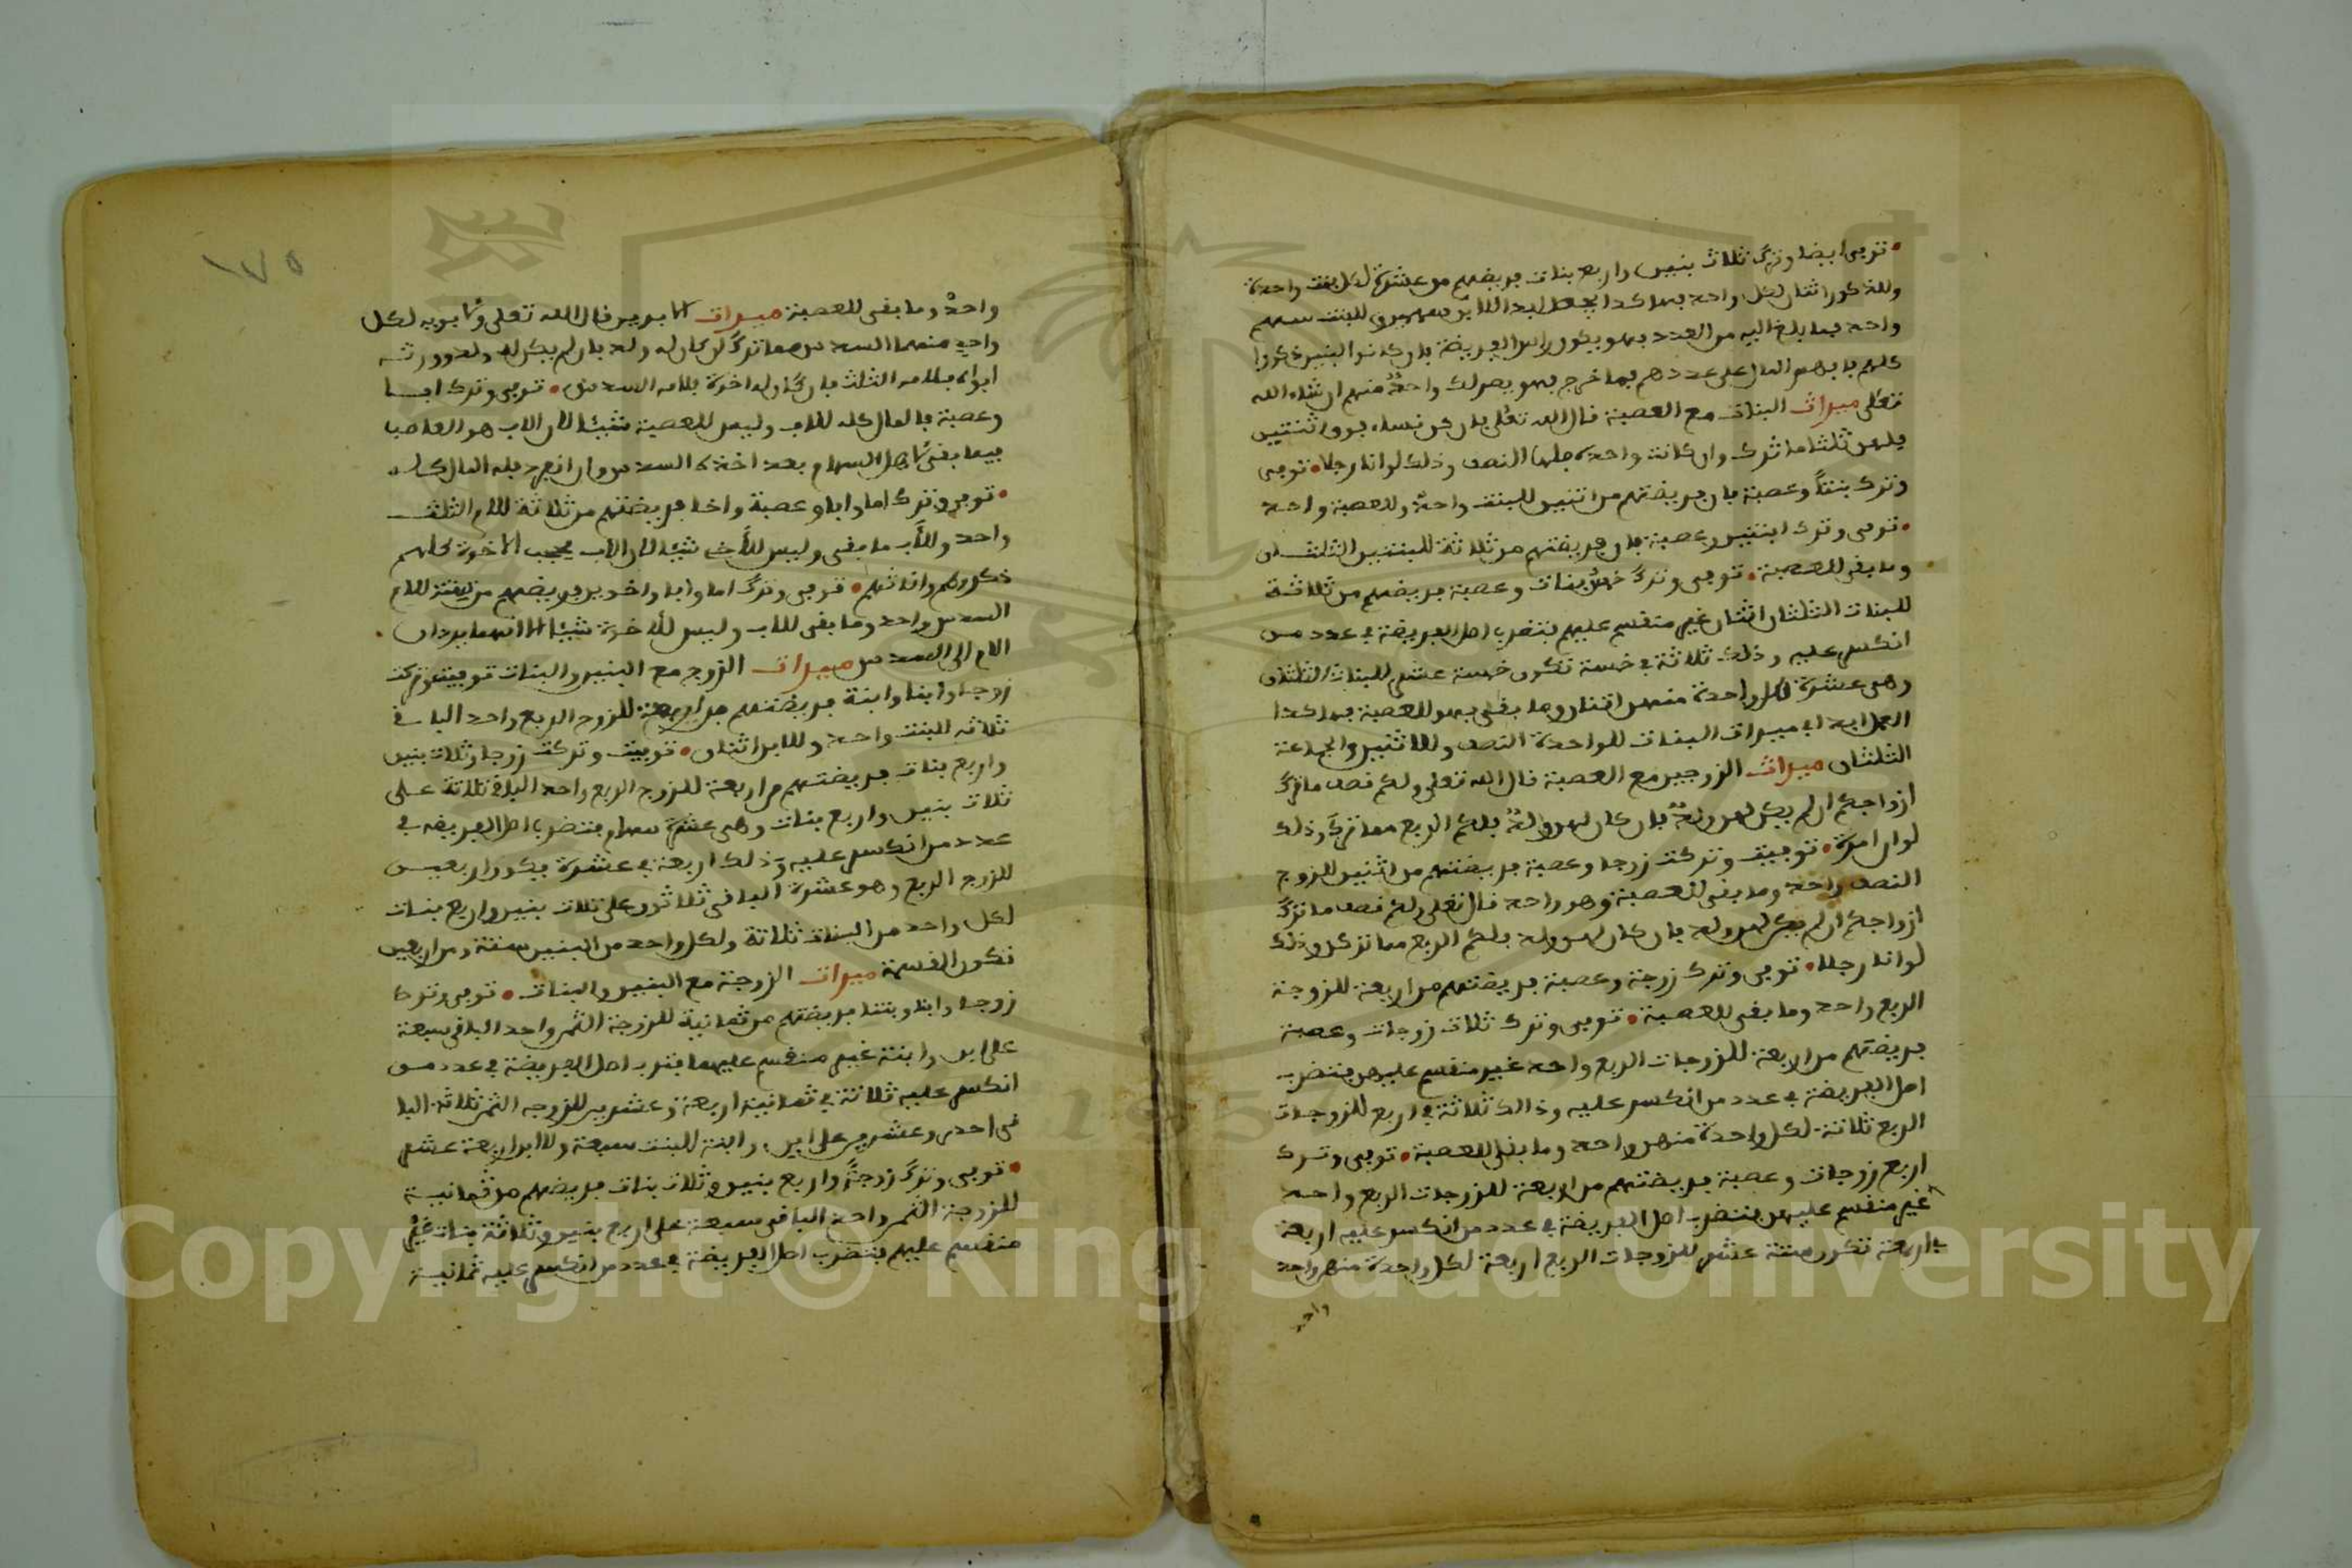 • توفي ايضا وترك ثلاث بنين واربع بنات فريضتهم من عشرة لكل بنت واحدة
وللذكور اثنان لكل واحد فهاكذا يجعل ابدا للابن سهمين وللبنت سهم
واحد فما بلغ اليه من العدد فهو يكون راس الفريضة فان كانوا البنين ذكورا
كلهم فاقسم المال على عددهم فما خرج فهو لكل واحد منهم ان شاء الله
تعلى ميراث البنات مع العصبة قال الله تعلى فان كن نساء فوق اثنتين
فلهن ثلثا ما ترك وان كانت واحدة فلها النصف وذلك لو انا رجلا • توفي
وترك بنتاً وعصبة فان فريضتهم من اثنين للبنت واحد وللعصبة واحد
• توفي وترك ابنتين وعصبة فان فريضتهم من ثلاثة للبنتين الثلثان
وما بقي للعصبة • توفي وترك خمس بنات وعصبة فريضتهم من ثلاثة
للبنات الثلثان اثنان غير منقسم عليهم فتضرب اصل الفريضة في عدد من
انكسر عليه وذلك ثلاثة في خمسة تكون خمسة عشر للبنات الثلثان
وهي عشرة لكل واحدة منهن اثنان وما بقي فهو للعصبة فهاكذا
العمل ابدا في ميراث البنات للواحدة النصف وللاثنين والجماعة
الثلثان ميراث الزوجين مع العصبة قال الله تعلى ولكم نصف ما ترك
ازواجكم ان لم يكن لهن ولد فان كان لهن ولد فلكم الربع مما تركن وذلك
لو ان امرة • توفيت وتركت زوجا وعصبة فريضتهم من اثنين للزوج
النصف واحد وما بقي للعصبة وهو واحد قال تعلى ولكم نصف ما ترك
ازواجكم ان لم يكن لهن ولد فان كان لهن ولد فلكم الربع مما تركن وذلك
لو انا رجلا • توفي وترك زوجة وعصبة فريضتهم من اربعة للزوجة
الربع واحد وما بقي للعصبة • توفي وترك ثلاث زوجات وعصبة
فريضتهم من اربعة للزوجات الربع واحد غير منقسم عليهن فتضرب
اصل الفريضة في عدد من انكسر عليه وذالك ثلاثة في اربع للزوجات
الربع ثلاثة لكل واحدة منهن واحد وما بقي للعصبة • توفي وترك
اربع زوجات وعصبة فريضتهم من اربعة للزوجات الربع واحد
غير منقسم عليهن فتضرب اصل الفريضة في عدد من انكسر عليه اربعة
في اربعة تكون ستة عشر للزوجات الربع اربعة لكل واحدة منهن واحد
واحد
١٧٥
واحد وما بقي للعصبة ميراث الابوين قال الله تعلى ولابويه لكل
واحد منهما السدس مما ترك ان كان له ولد فان لم يكن له ولد وورثه
ابواه فلامه الثلث فان كان له اخوة فلامه السدس • توفي وترك ابا
وعصبة فالمال كله للاب وليس للعصبة شيئا لان الاب هو العاصب
فيما بقي لاهل السهام بعد اخذه السدس وان انفرد فله المال كله
• توفي وترك اما وابا وعصبة واخا فريضتهم من ثلاثة للام الثلث
واحد وللاب ما بقي وليس للأخ شيئا لان الاب يحجب الاخوة كلهم
ذكورهم واناثهم • توفي وترك اما وابا واخوين فريضتهم من ستة للام
السدس واحد وما بقي للاب وليس للأخوة شيئا الا انهما يردان
الام الى السدس ميراث الزوج مع البنين والبنات توفيت وتركت
زوجا وابنا وابنة فريضتهم من اربعة للزوج الربع واحد الباقي
ثلاثة للبنت واحد وللابن اثنان • توفيت وتركت زوجا وثلاث بنين
واربع بنات فريضتهم من اربعة للزوج الربع واحد الباقي ثلاثة على
ثلاث بنين واربع بنات وهي عشرة سهام فتضرب اصل الفريضه في
عدد من انكسر عليه وذلك اربعة في عشرة يكون اربعين
للزوج الربع وهو عشرة الباقي ثلاثون على ثلاث بنين واربع بنات
لكل واحد من البنات ثلاثة ولكل واحد من البنين ستة ومن اربعين
تكون القسمة ميراث الزوجة مع البنين والبنات • توفي وترك
زوجة وابنا وبنتا فريضتهم من ثمانية للزوجة الثمن واحد الباقي سبعة
على ابن وابنة غير منقسم عليهما فتضرب اصل الفريضة في عدد من
انكسر عليه ثلاثة في ثمانية اربعة وعشرين للزوجه الثمن ثلاثة البا
قي احدى وعشرين على ابن وابنة للبنت سبعة وللابن اربعة عشر
• توفي وترك زوجةً واربع بنين وثلاث بنات فريضتهم من ثمانية
للزوجة الثمن واحد الباقي سبعة على اربع بنين وثلاثة بنات غير
منقسم عليهم فتضرب اصل الفريضة في عدد من انكسر عليه ثمانية
Copyright © King Saud University
1957